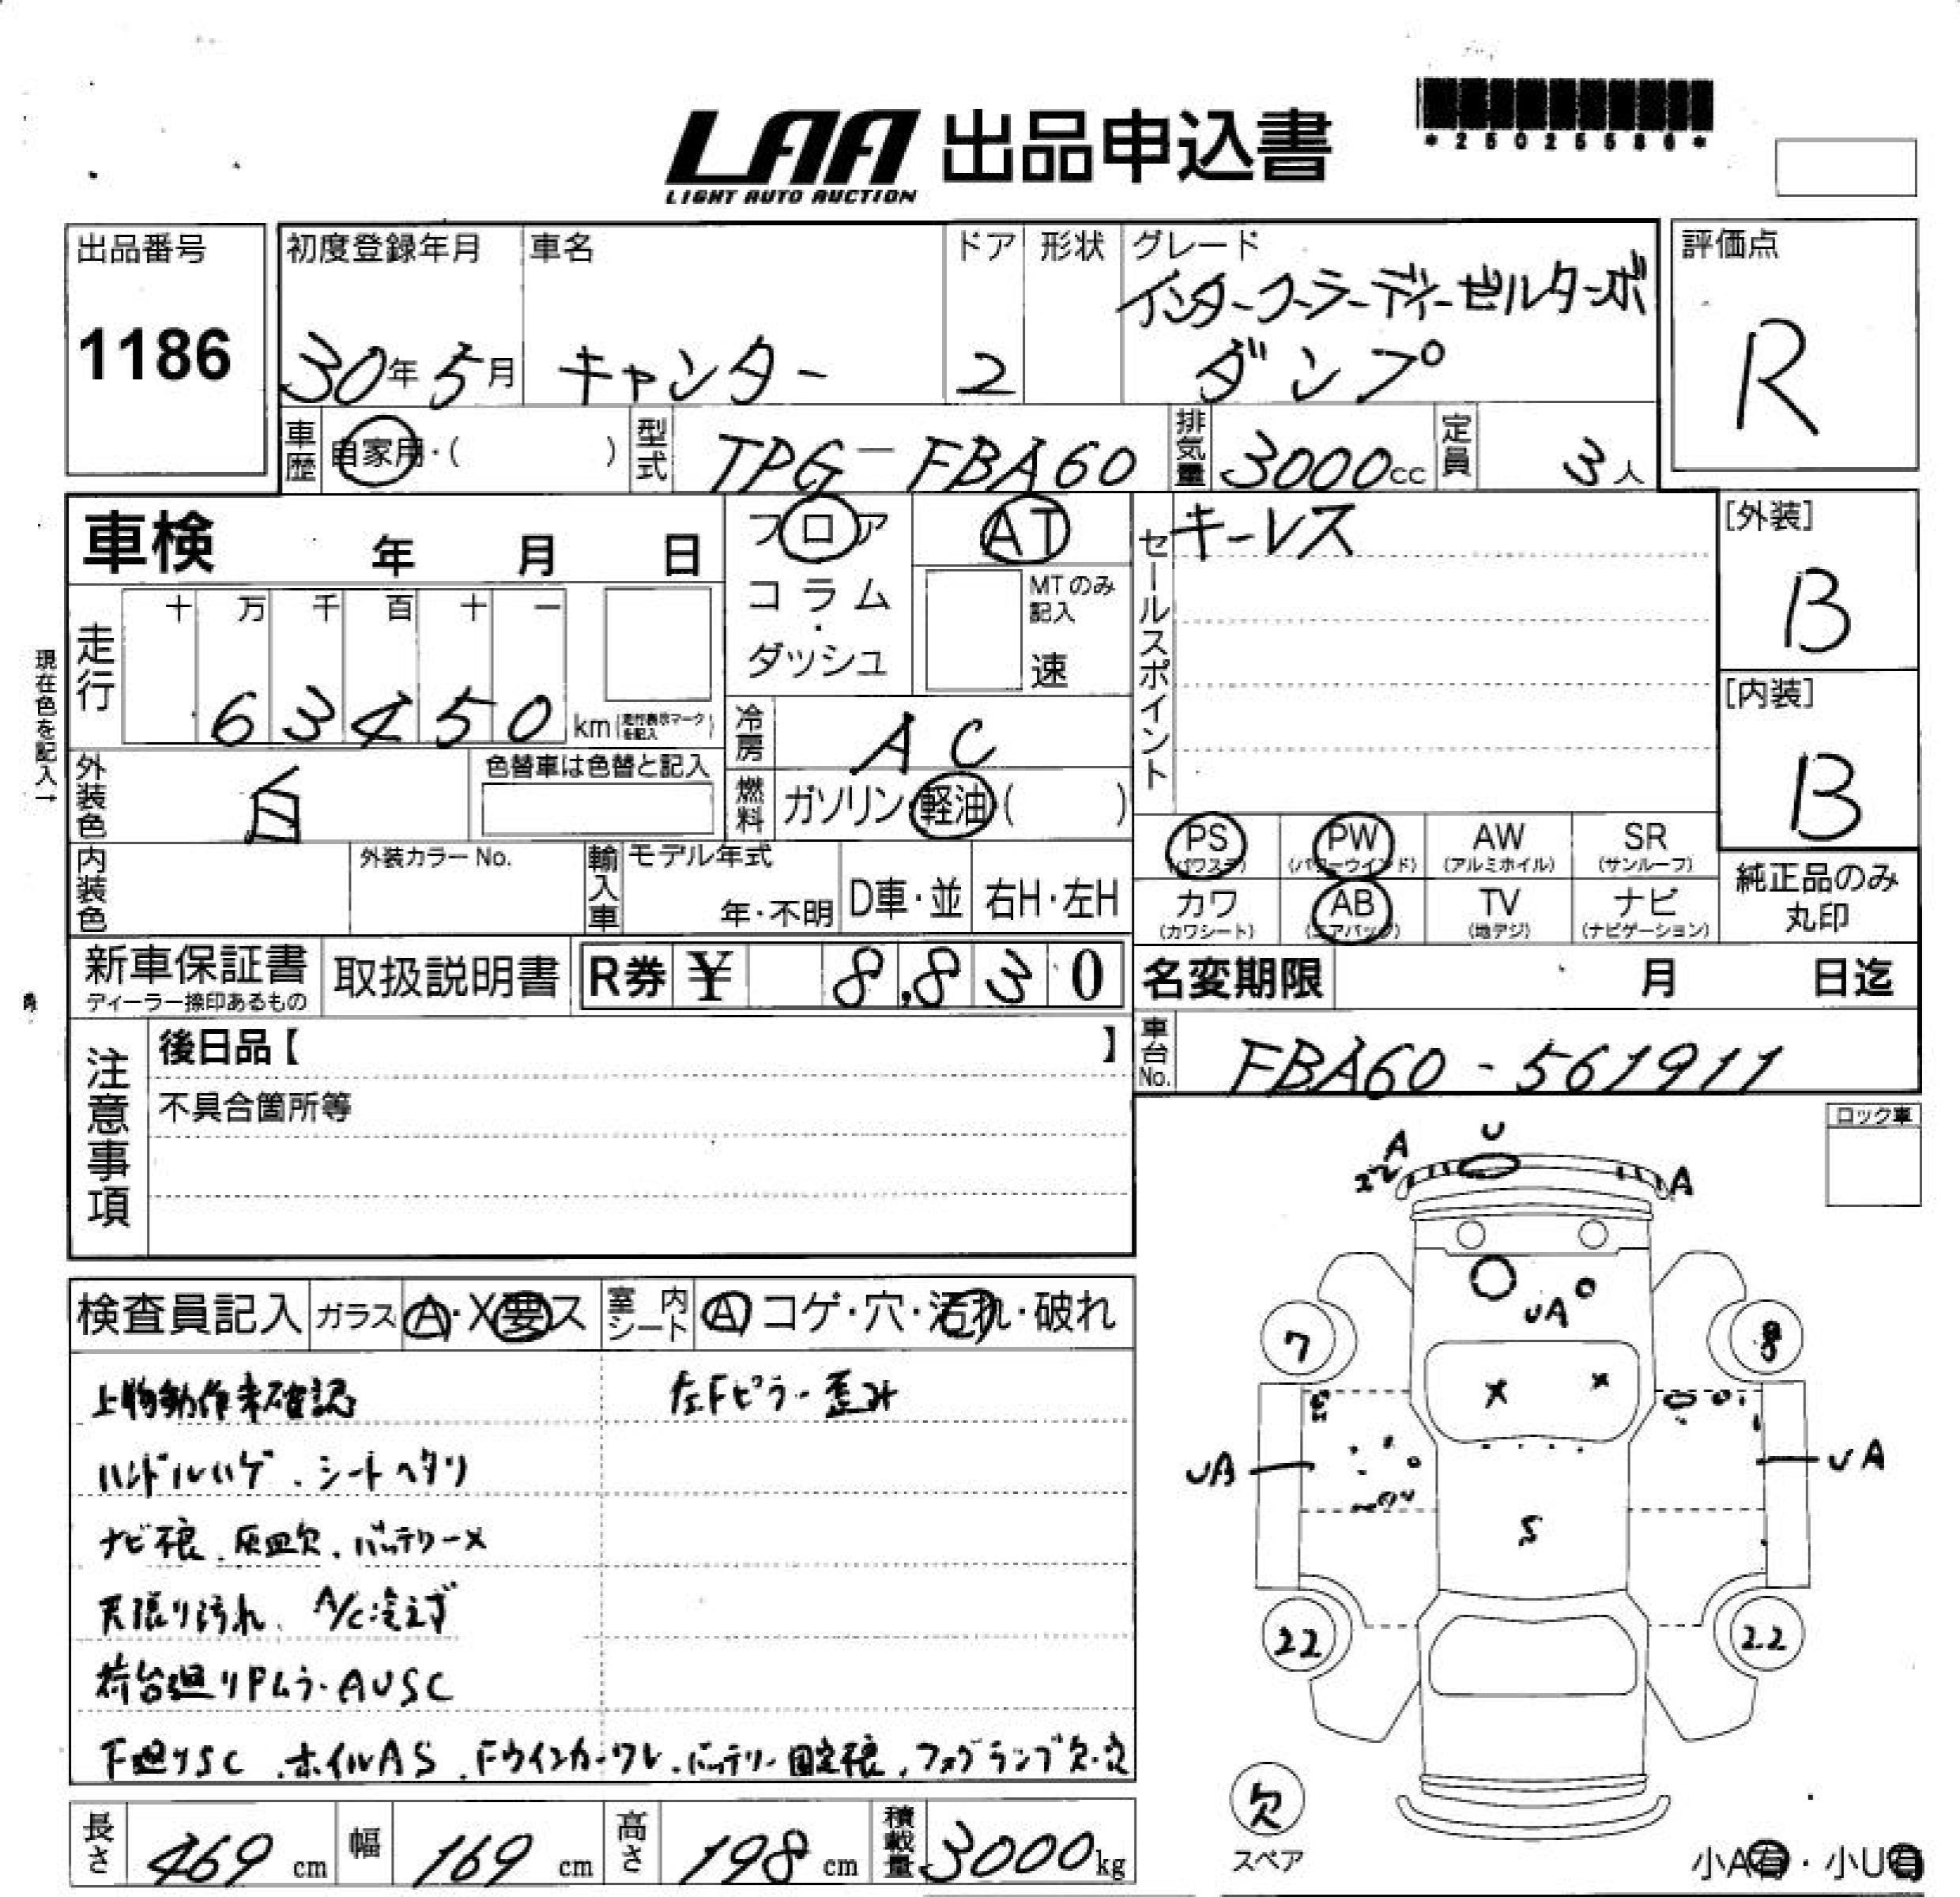 LAA 出品申込書
LIGHT AUTO AUCTION
*25025586*
出品番号
1186
初度登録年月
30年5月
車名
キャンター
ドア
2
形状
グレード
インタークーラーディーゼルターボ
ダンプ
評価点
R
車歴
自家用・( )
型式
TPG-FBA60
排気量
3000cc
定員
3人
車検 年 月 日
フロア
コラム・ダッシュ
AT
MTのみ記入
速
セールスポイント
キーレス
[外装]
B
[内装]
B
現在色を記入→
走行
十 万 千 百 十 一
63450 km (走行表示マークを記入)
冷房
AC
燃料
ガソリン・軽油( )
外装色
白
色替車は色替と記入
内装色
外装カラーNo.
輸入車
モデル年式
年・不明
D車・並
右H・左H
PS
(パワステ)
PW
(パワーウインド)
AW
(アルミホイル)
SR
(サンルーフ)
カワ
(カワシート)
AB
(エアバッグ)
TV
(地デジ)
ナビ
(ナビゲーション)
純正品のみ
丸印
新車保証書
ディーラー捺印あるもの
取扱説明書
R券 ¥ 8,830
名変期限 月 日迄
注意事項
後日品【 】
不具合箇所等
車台No.
FBA60-561911
ロック車
検査員記入
ガラス
A・X要ス
室内シート
A コゲ・穴・汚れ・破れ
上物動作未確認
左Fピラー歪み
ハンドルハゲ、シートヘタリ
ナビ不良、灰皿欠、バッテリーX
天張り汚れ、A/C冷えず
荷台廻りPムラ・AUSC
下廻りSC、ホイルAS、Fウインカーワレ、バッテリー固定不良、フォグランプ欠・穴
U
A
A
UA
7
8
X
X
UA
UA
S
22
22
欠
スペア
小A有・小U有
長さ
469 cm
幅
169 cm
高さ
198 cm
積載量
3000kg